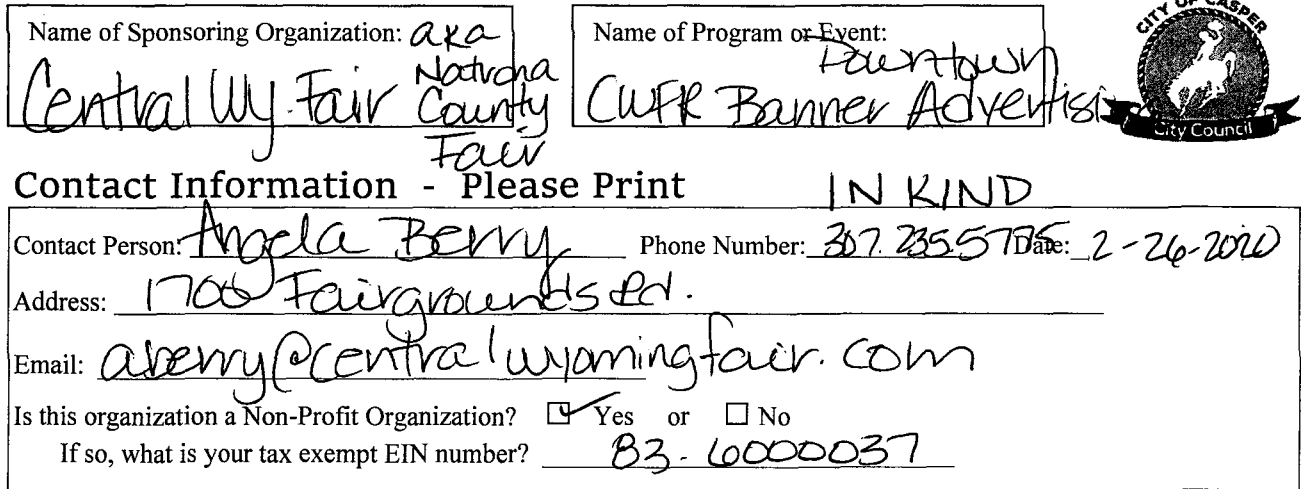 Name of Sponsoring Organization: aka
Central Wy. Fair Natrona County Fair
Name of Program or Event:
Downtown
CWFR Banner Advertisi
CITY OF CASPER
City Council
Contact Information - Please Print IN KIND
Contact Person: Angela Berry Phone Number: 307.235.5775 Date: 2-26-2020
Address: 1700 Fairgrounds Rd.
Email: aberry@centralwyomingfair.com
Is this organization a Non-Profit Organization? ☑ Yes or ☐ No
If so, what is your tax exempt EIN number? 83-6000037